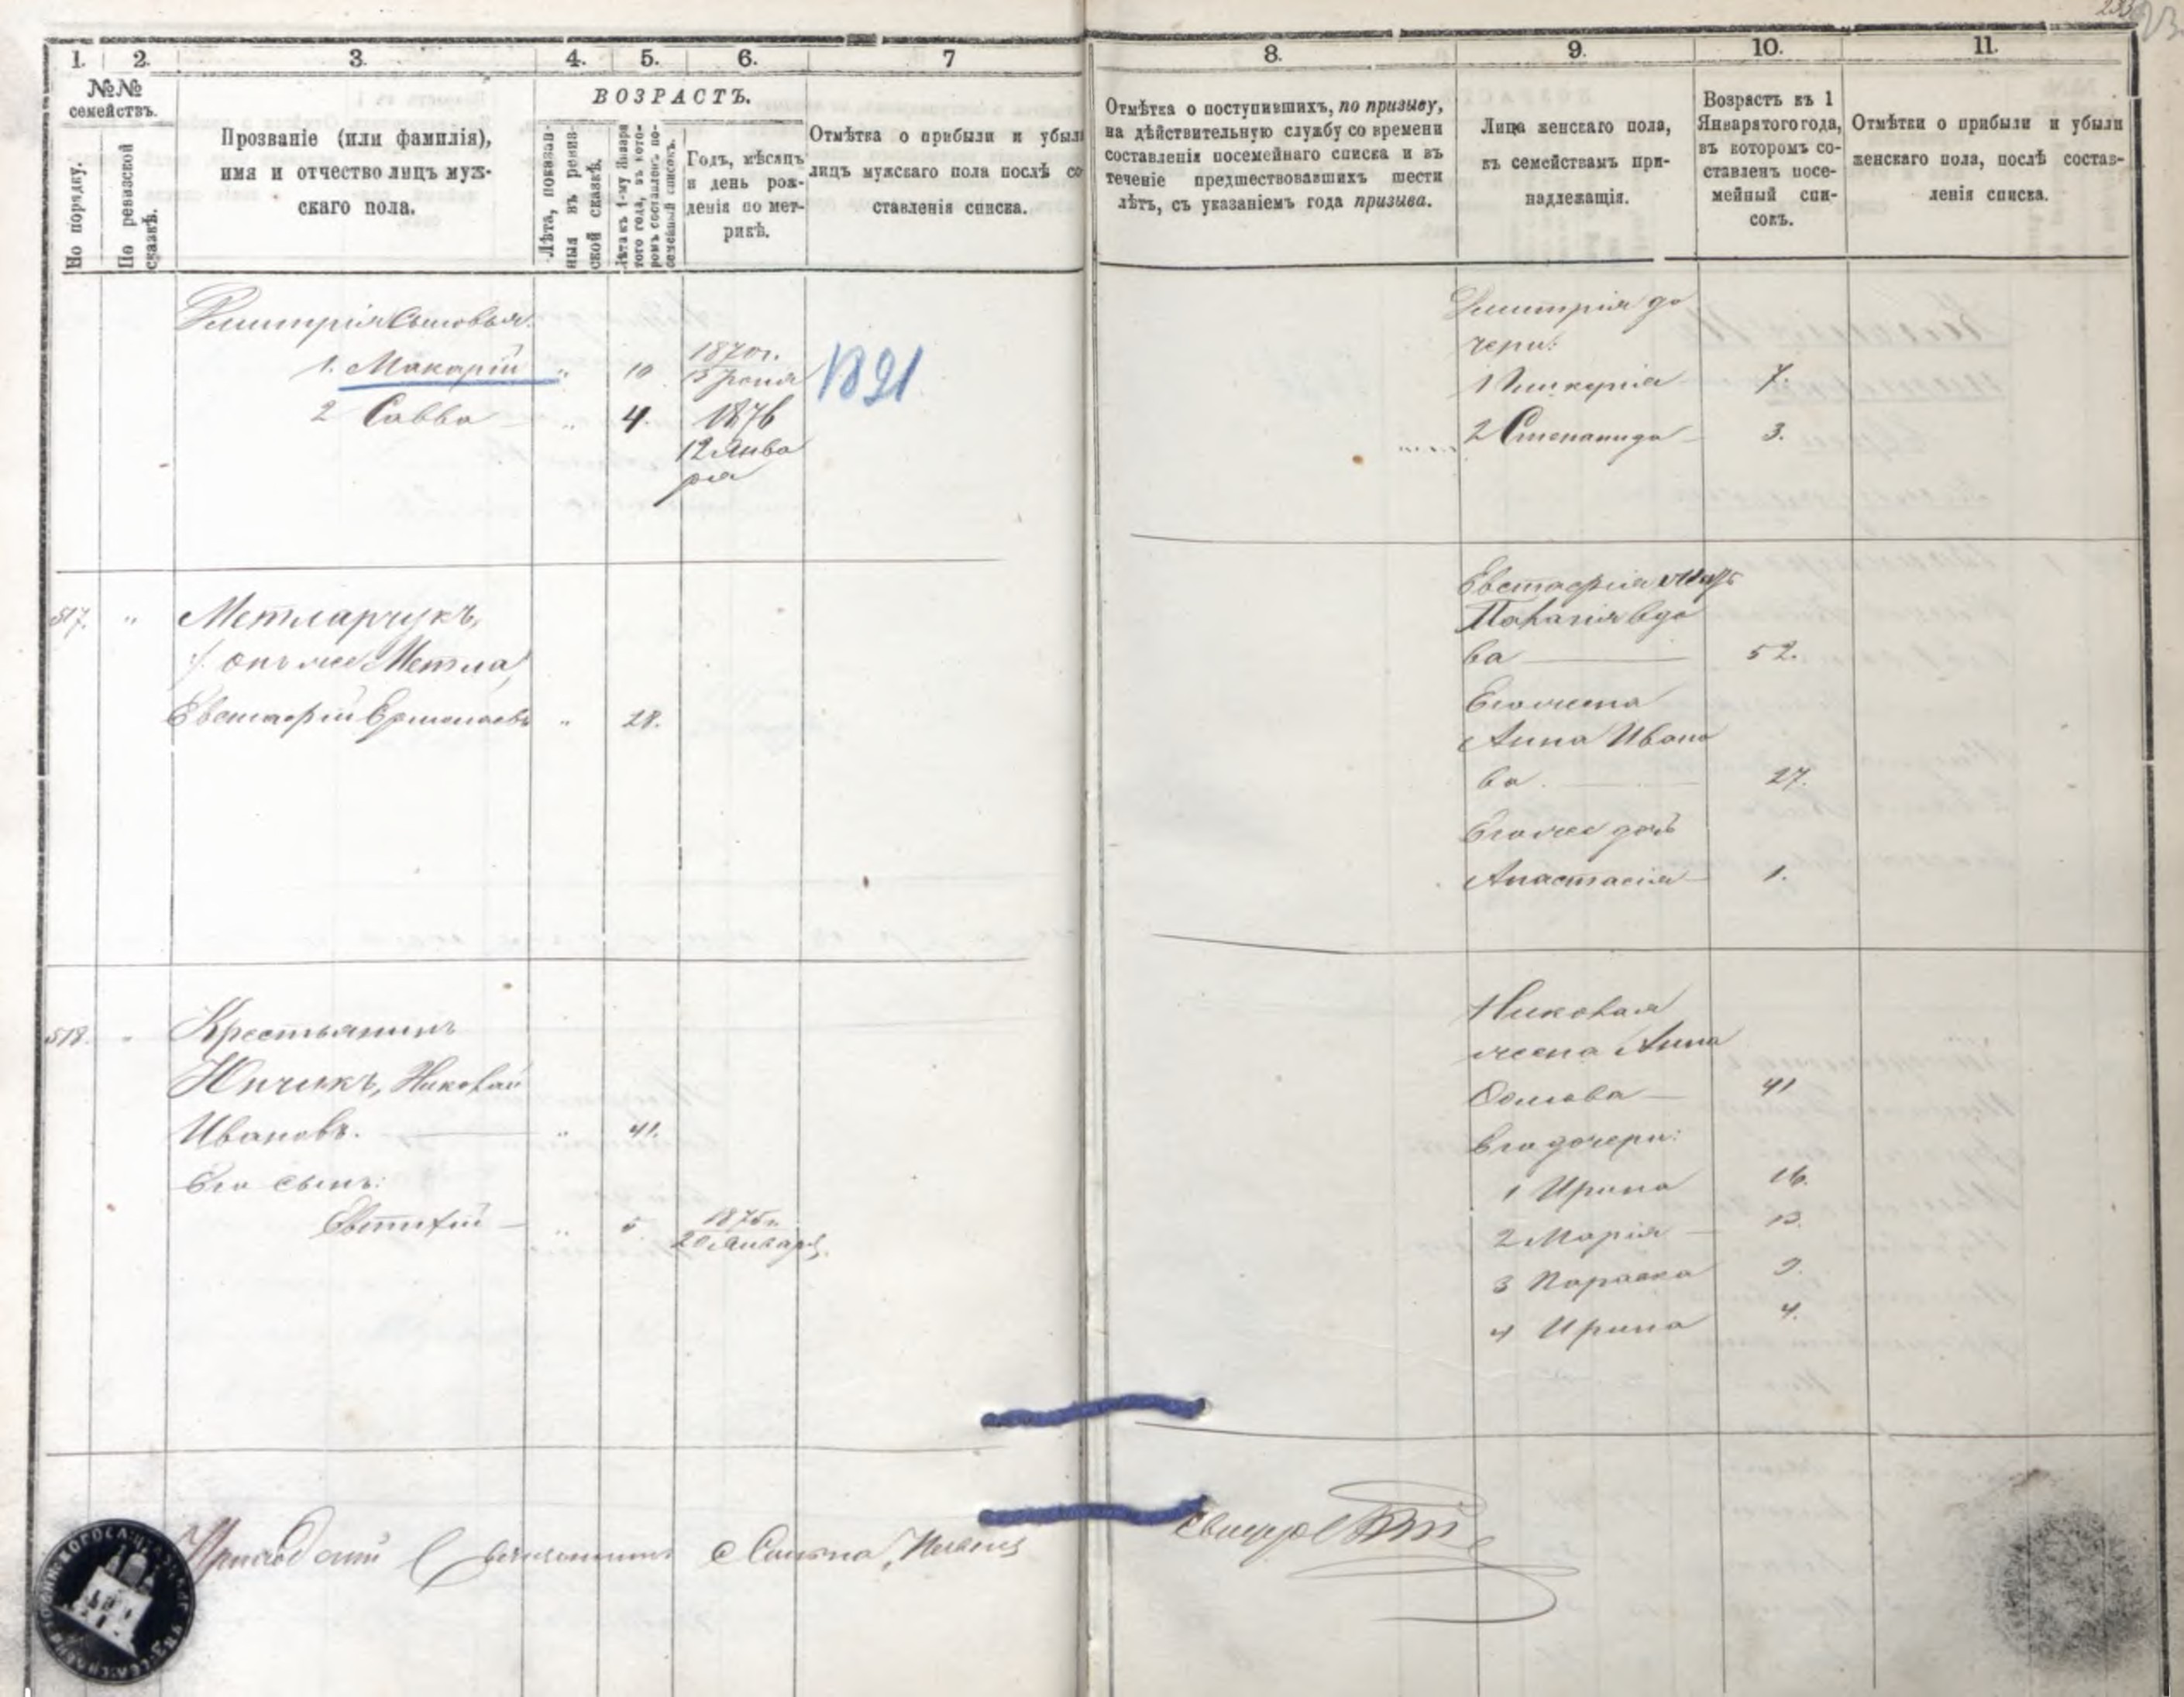 1.
2.
3.
4.
5.
6.
7
№№
семействъ.
По порядку.
По ревизской
сказкѣ.
Прозваніе (или фамилія),
имя и отчество лицъ муж-
скаго пола.
ВОЗРАСТЪ.
Лѣта, показан-
ныя въ ревиз-
ской сказкѣ.
Лѣта къ 1-му Января
того года, въ кото-
ромъ составленъ по-
семейный списокъ.
Годъ, мѣсяцъ
и день рож-
денія по мет-
рикѣ.
Отмѣтка о прибыли и убыли
лицъ мужскаго пола послѣ со
ставленія списка.
Дмитрія сыновья:
1. Макарій " 10 1870 г.
1891
2 Савва " 4. 1876
12 Янва
ря
517. " Метларчукъ,
(онъ же Метла)
Евстафій Ермолаевъ " 28.
518. " Крестьянинъ
Юнчикъ, Николай
Ивановъ. " 41.
Его сынъ:
Евтихій " 5. 1875 г.
20 Января
Приходскій Священникъ
8.
9.
10.
11.
Отмѣтка о поступившихъ, по призыву,
на дѣйствительную службу со времени
составленія посемейнаго списка и въ
теченіе предшествовавшихъ шести
лѣтъ, съ указаніемъ года призыва.
Лица женскаго пола,
къ семействамъ при-
надлежащія.
Возрастъ къ 1
Января того года,
въ которомъ со-
ставленъ посе-
мейный спи-
сокъ.
Отмѣтки о прибыли и убыли
женскаго пола, послѣ состав-
ленія списка.
Дмитрія до
чери:
1 7.
2 Степанида 3.
Евстафія мать
Палагія вдо
ва 52.
Его жена
Анна Ивано
ва. 27.
Его же дочь
Анастасія 1.
Николая
жена Анна
41
Его дочери:
1 Ирина 16.
2 Марія 13.
3 Параска 9.
4 Ирина 4.